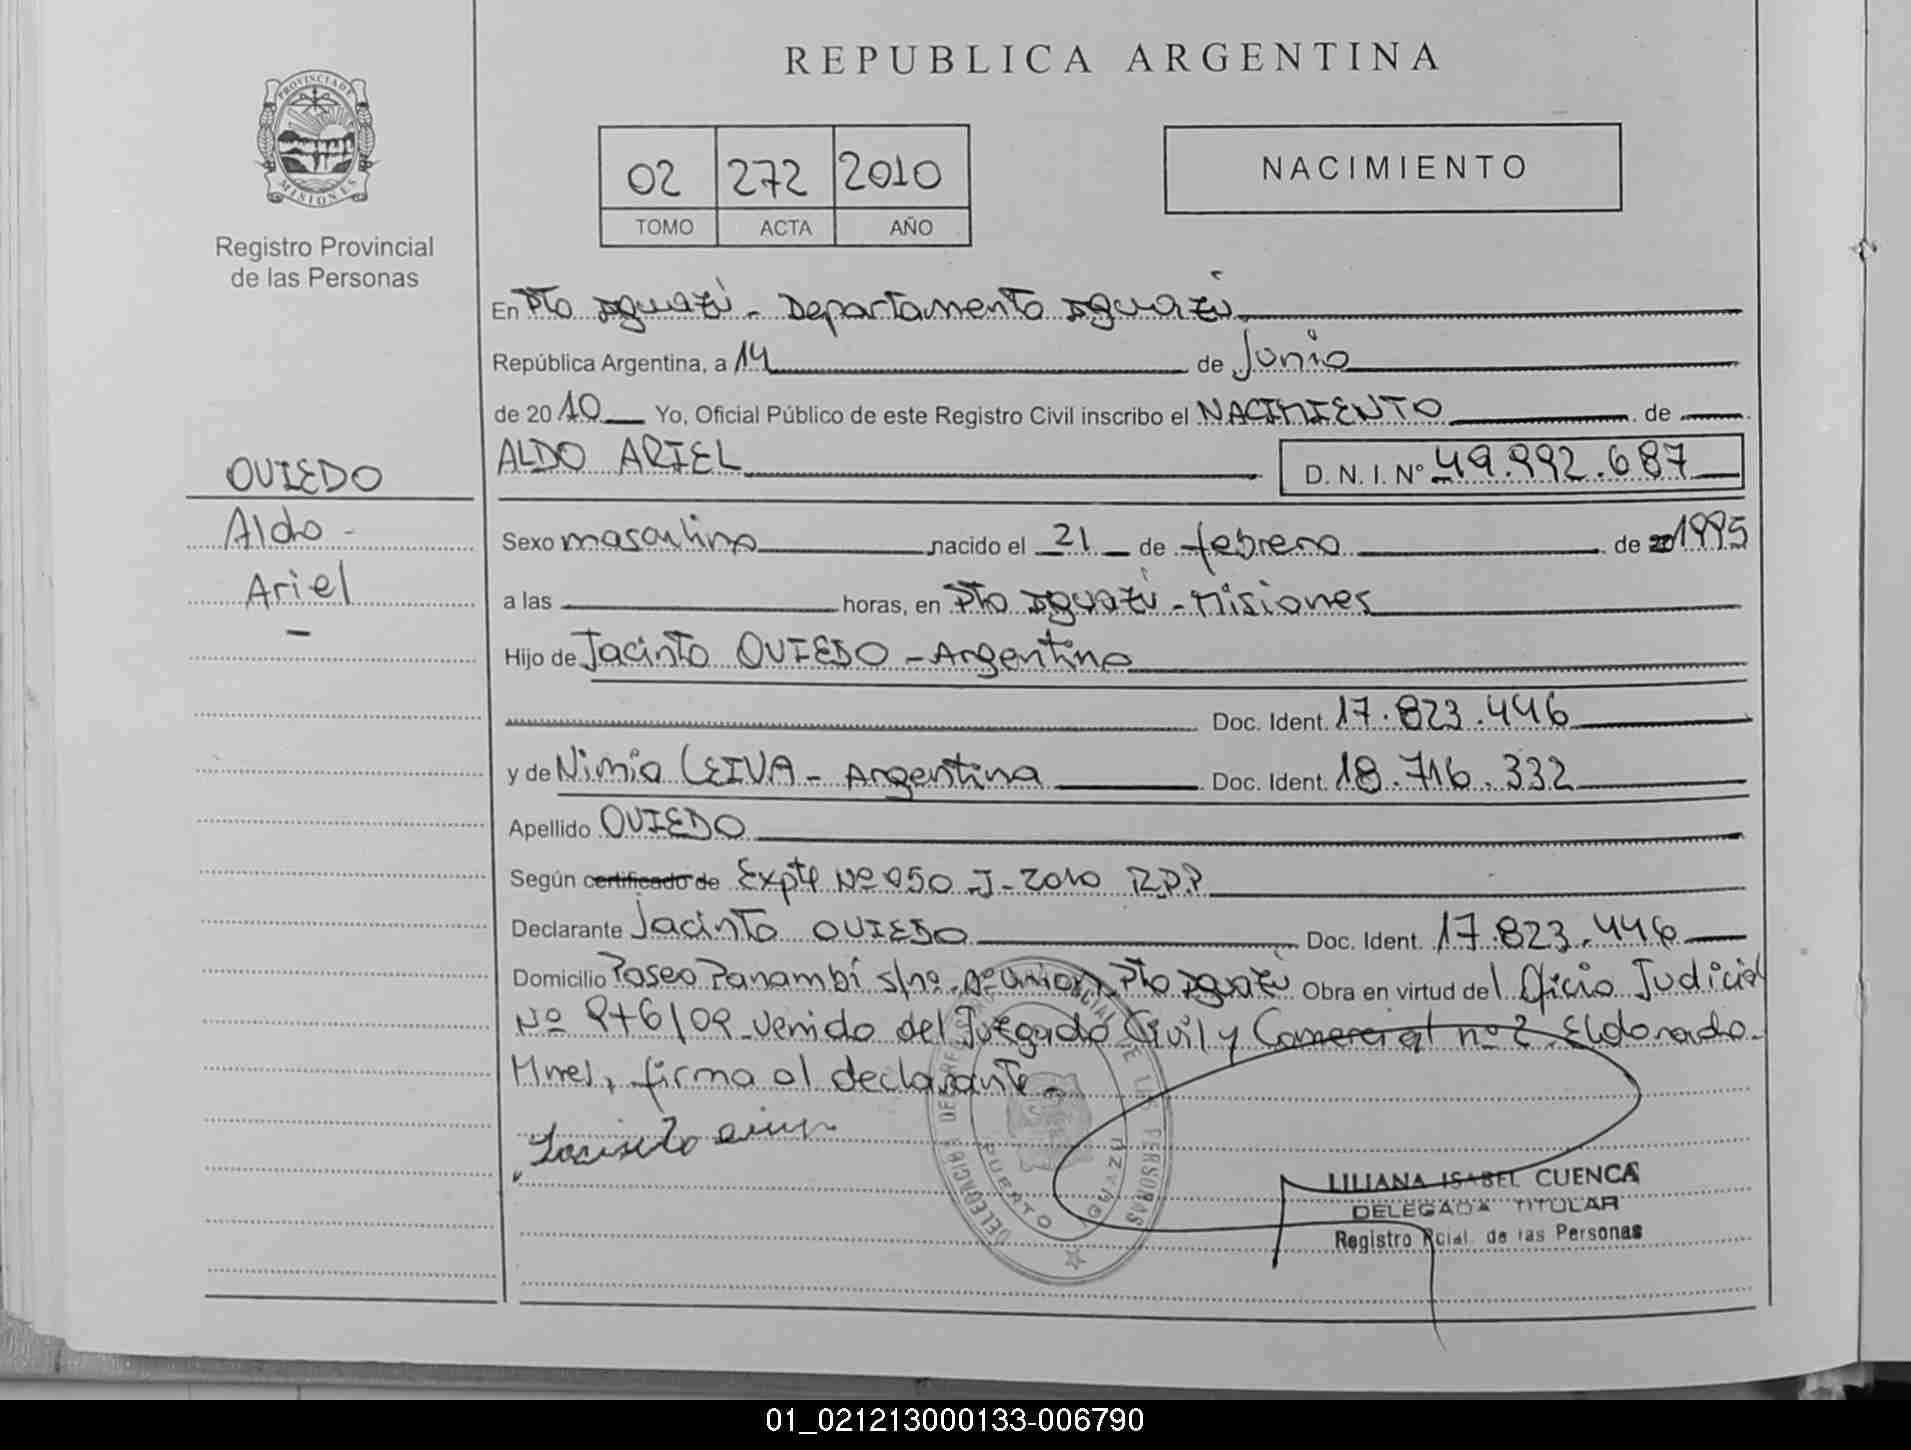 REPUBLICA ARGENTINA
PROVINCIA DE MISIONES
Registro Provincial
de las Personas
02 272 2010
TOMO ACTA AÑO
NACIMIENTO
En Pto Iguazú - Departamento Iguazú
República Argentina, a 14 de Junio
de 2010 Yo, Oficial Público de este Registro Civil inscribo el NACIMIENTO de
ALDO ARIEL D. N. I. Nº 49.992.687
OVIEDO
Aldo -
Ariel
Sexo masculino nacido el 21 de febrero de 1995
a las horas, en Pto Iguazú - Misiones
Hijo de Jacinto OVIEDO - Argentino
Doc. Ident. 17.823.446
y de Nimia LEIVA - Argentina Doc. Ident. 18.716.332
Apellido OVIEDO
Según certificado de Expte Nº 950 J-2010 R.P.P
Declarante Jacinto OVIEDO Doc. Ident. 17.823.446
Domicilio Paseo Panambí s/nº Bº Union Pto Iguazú Obra en virtud del Oficio Judicial
Nº 976/09 venido del Juzgado Civil y Comercial nº 2 Eldorado
Mnes, firma al declarante -
DELEGACION DEL REGISTRO PROVINCIAL DE LAS PERSONAS
PUERTO IGUAZU
LILIANA ISABEL CUENCA
DELEGADA TITULAR
Registro Pcial. de las Personas
01_021213000133-006790